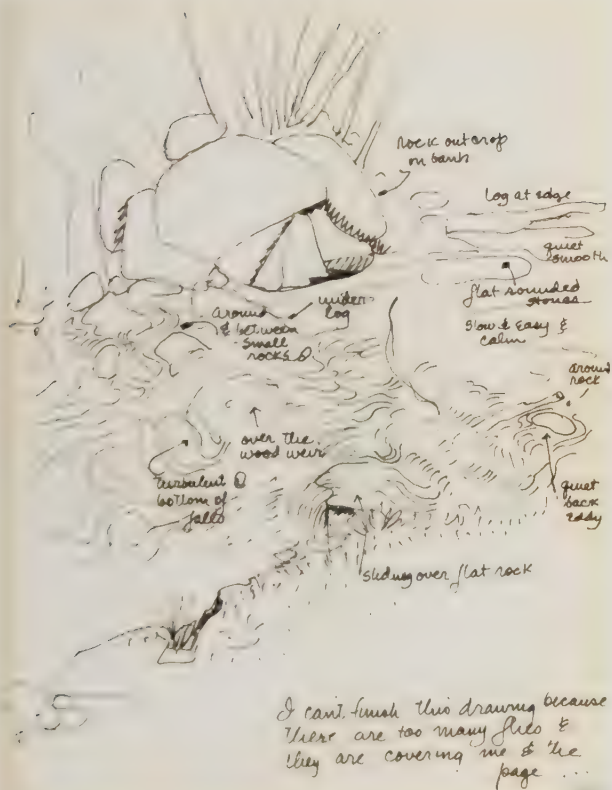 rock outcrop
on bank
Log at edge
quiet
smooth
flat rounded
stones
slow & easy &
calm
around
& between
small
rocks @
under
log
around
rock
over the
wood weir
turbulent @
bottom of
falls
quiet
back
eddy
sliding over flat rock
I can't finish this drawing because
there are too many flies &
they are covering me & the
page ...